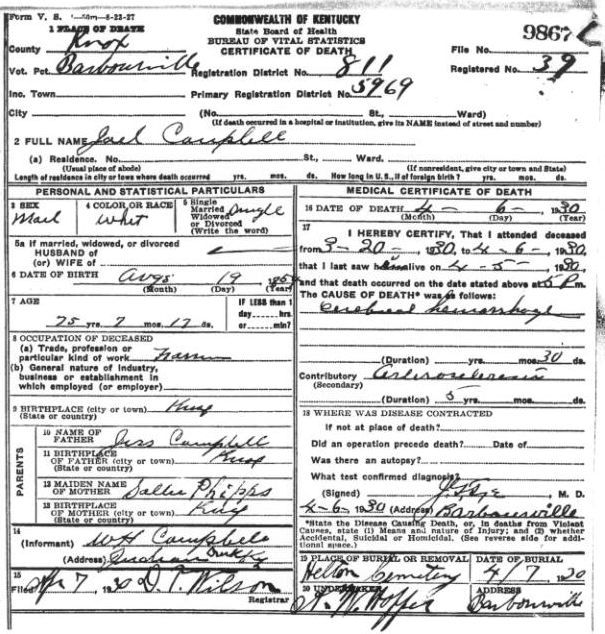 Form V. S. 8-23-27
COMMONWEALTH OF KENTUCKY
State Board of Health
BUREAU OF VITAL STATISTICS
CERTIFICATE OF DEATH
9867
1 PLACE OF DEATH
County Knox
File No.
Vot. Pct. Barbourville Registration District No. 811 Registered No. 39
Inc. Town Primary Registration District No. 5969
City (No. St., Ward)
(If death occurred in a hospital or institution, give its NAME instead of street and number)
2 FULL NAME Joel Campbell
(a) Residence. No. St., Ward.
(Usual place of abode) (If nonresident, give city or town and State)
Length of residence in city or town where death occurred yrs. mos. ds. How long in U.S., if of foreign birth? yrs. mos. ds.
PERSONAL AND STATISTICAL PARTICULARS
3 SEX Mail
4 COLOR OR RACE Whit
5 Single Married Widowed or Divorced (Write the word) Single
5a If married, widowed, or divorced
HUSBAND of
(or) WIFE of
6 DATE OF BIRTH Augs 19 1854
(Month) (Day) (Year)
7 AGE
75 yrs. 7 mos. 17 ds.
IF LESS than 1 day hrs. or min?
8 OCCUPATION OF DECEASED
(a) Trade, profession or particular kind of work
(b) General nature of industry, business or establishment in which employed (or employer)
9 BIRTHPLACE (city or town) Knox
(State or country)
PARENTS
10 NAME OF FATHER Jess Campbell
11 BIRTHPLACE OF FATHER (city or town) Knox
(State or country)
12 MAIDEN NAME OF MOTHER Sallie Phipps
13 BIRTHPLACE OF MOTHER (city or town) Knox
(State or country)
14
(Informant) WH Campbell
(Address) Indian
15
Filed Apr 7, 1930 D. T. Wilson
Registrar
MEDICAL CERTIFICATE OF DEATH
16 DATE OF DEATH 4- 6- 1930
(Month) (Day) (Year)
17
I HEREBY CERTIFY, That I attended deceased
from 3-20-, 1930, to 4-6-, 1930,
that I last saw him alive on 4-5-, 1930,
and that death occurred on the date stated above at 5 P m.
The CAUSE OF DEATH* was as follows:
Cerebral hemorrhage
(Duration) yrs. mos. 30 ds.
Contributory
(Secondary)
(Duration) 5 yrs. mos. ds.
18 WHERE WAS DISEASE CONTRACTED
If not at place of death?
Did an operation precede death? Date of
Was there an autopsy?
What test confirmed diagnosis?
(Signed) M. D.
4-6-1930 (Address) Barbourville
*State the Disease Causing Death, or, in deaths from Violent
Causes, state (1) Means and nature of Injury; and (2) whether
Accidental, Suicidal or Homicidal. (See reverse side for addi-
tional space.)
19 PLACE OF BURIAL OR REMOVAL Helton Cemetery
DATE OF BURIAL 4/7 1930
20 UNDERTAKER
ADDRESS Barbourville